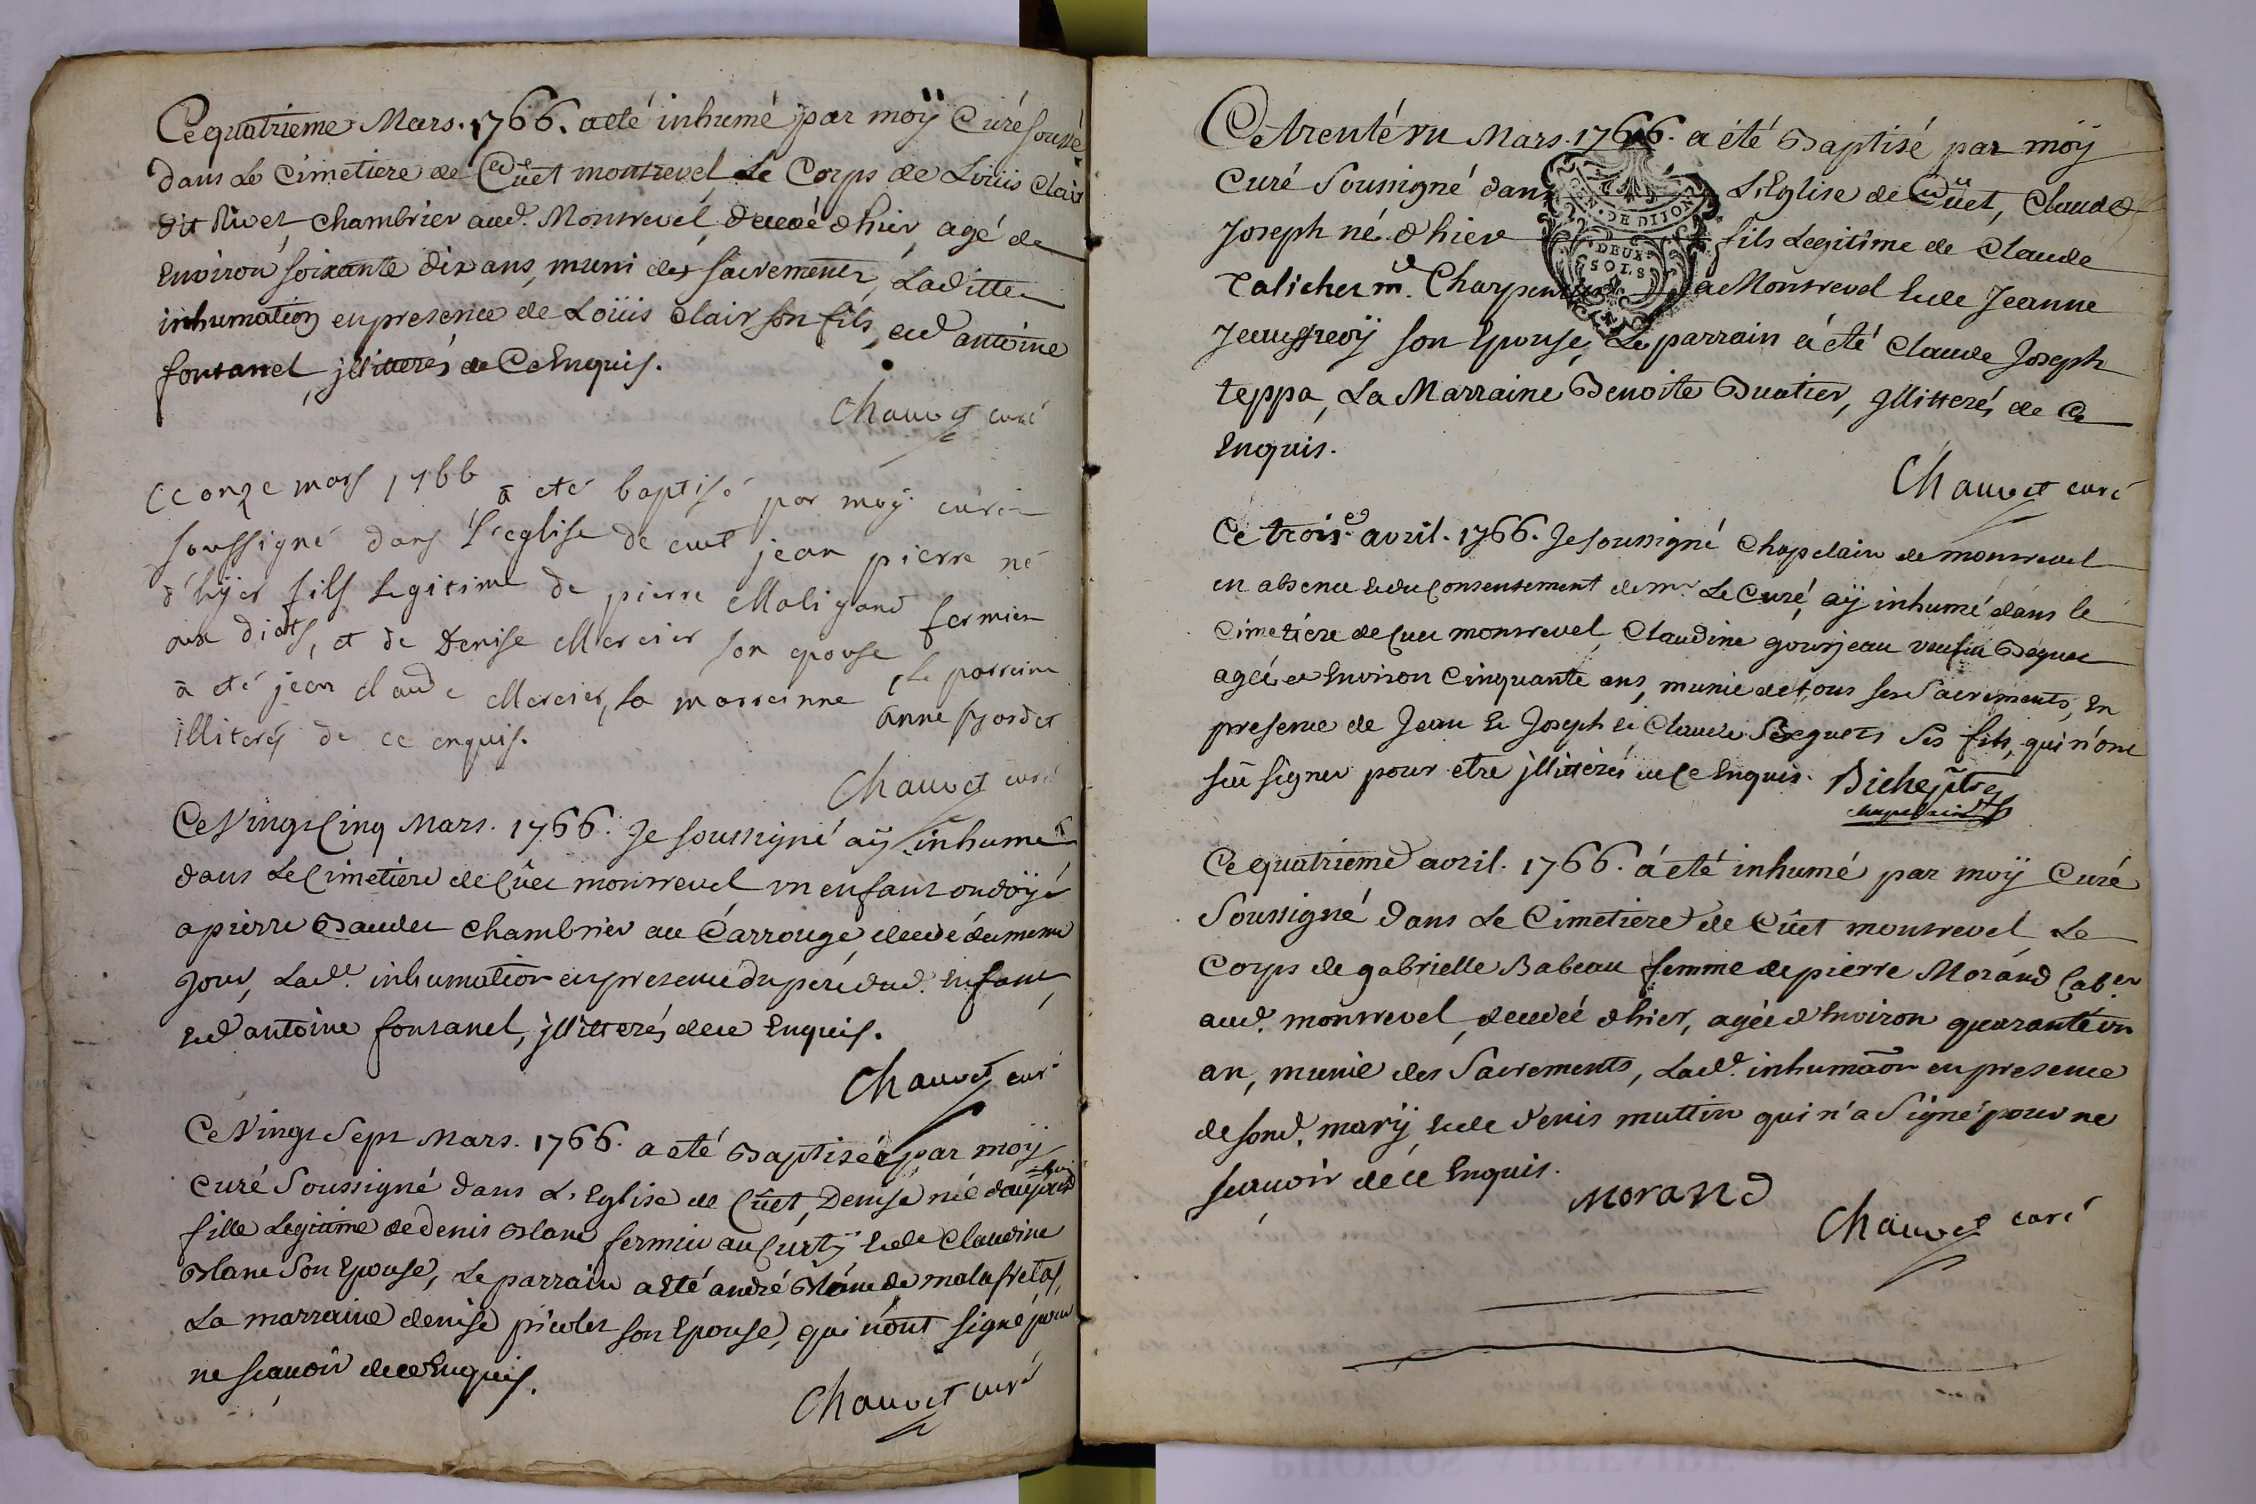 Ce quatrieme Mars. 1766. a eté inhumé par moÿ Curé soussé
dans Le Cimetiere de Cuet montrevel Le Corps de Loüis Clair
dit Rivet, chambrier aud. Montrevel, decedé d'hier, agé de
Environ soixante dix ans, muni des sacrements, Laditte
inhumation en presence de Loüis Clair son fils, et d'antoine
fontanel, jllitterés de Ce Enquis.
Chauvet curé
Ce onze mars 1766 a eté baptisé par moÿ curé
soussigné dans l'eglise de cuet jean pierre né
d'hÿer fils legitime de pierre Maligand fermier
aux diots, et de Denise Mercier son epouse, Le parrain
a eté jean claude Mercier, la marrainne anne
illiterés de ce enquis.
Chauvet curé
Ce Vingt Cinq Mars. 1766. Je soussigné aÿ inhumé
dans Le Cimetiere de Cüet montrevel un enfant ondoÿé
a pierre Baudet chambrier au Carrouge, decedé du meme
Jour, Lad.e inhumation en presence du pere dud. Enfant,
Et d'antoine fontanel, jllitterés de ce Enquis.
Chauvet curé
Ce Vingt Sept Mars. 1766. a eté Baptisée par moÿ
Curé Soussigné dans L'Eglise de Cüet, Denise née d'aujourd'hui
fille Legitime de denis Blanc fermier au Curtÿ Et de Claudine
Blanc Son Epouse, Le parrain a Eté andré Blanc de malafretas,
La marraine denise picolet son Epouse, qui n'ont signé pour
ne scavoir de ce Enquis.
Chauvet curé
Ce trente un Mars. 1766. a été Baptisé par moÿ
Curé Soussigné dans L'Eglise de Cüet, Claude
Joseph né d'hier fils Legitime de Claude
Calichet m.e Charpentier a Montrevel Et de Jeanne
Jeauffreoÿ son Epouse, Le parrain a été Claude Joseph
teppa, La Marraine Benoite Buatier, jllitterés de Ce
Enquis.
GEN. DE DIJON
DEUX
SOLS
Chauvet curé
Ce trois.e avril. 1766. Je soussigné Chapelain de montrevel
en absence Et du Consentement de m.r Le Curé, aÿ inhumé dans le
Cimetiere de Cuet montrevel, Claudine gourjeau veufve
agée de Environ Cinquante ans, munie de tous ses Sacrements, En
presence de Jean Et Joseph Et Claude ses fils, qui n'ont
sçu signer pour etre jllitterés de Ce Enquis. Biche ptre
chapelain
Ce quatrieme avril. 1766. a été inhumé par moÿ Curé
Soussigné dans Le Cimetiere de Cüet montrevel, Le
Corps de gabrielle Babeau femme de pierre Morand Cab.er
aud. montrevel, decedée d'hier, agée d'Environ quarante un
an, munie des Sacrements, Lad.e inhumaon en presence
de sond. marÿ, Et de denis muttin qui n'a Signé pour ne
scavoir de ce Enquis.
Morand
Chauvet curé